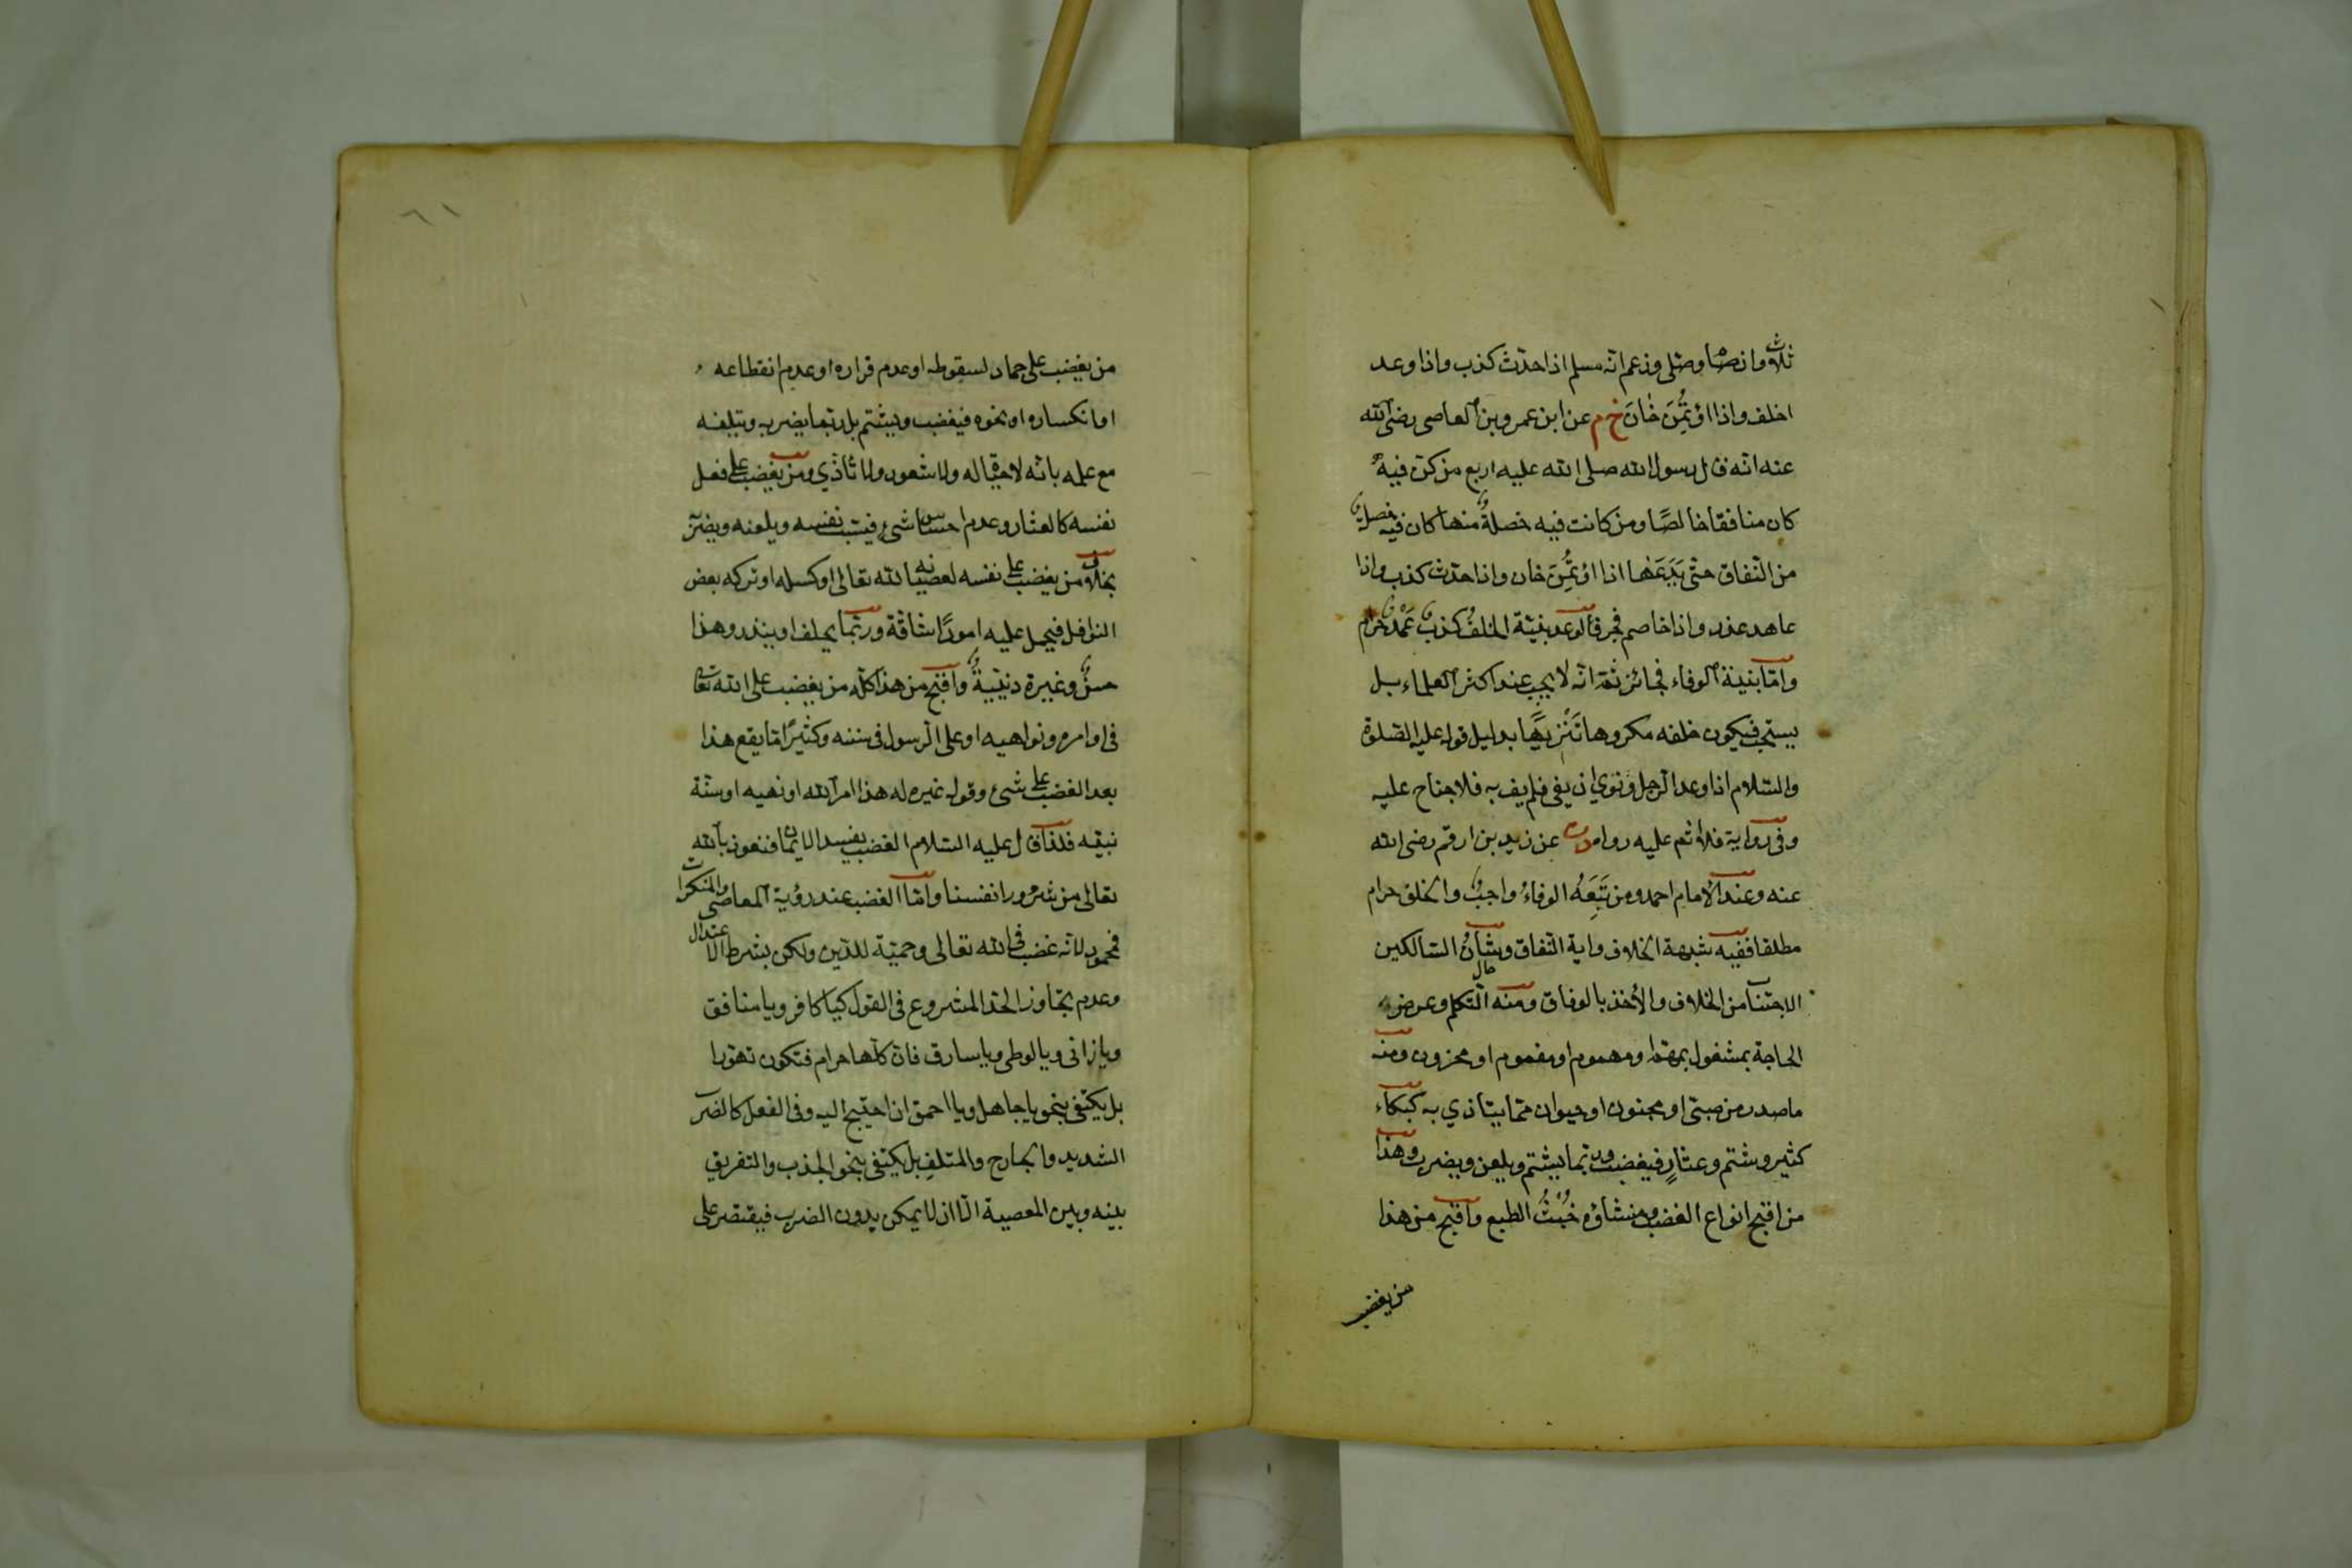 ثلاث وان صام وصلى وزعم انه مسلم اذا حدث كذب واذا وعد
اخلف واذا اؤتُمِنَ خَانَ خ م عن ابن عمرو بن العاصى رضى الله
عنه انه قال رسول الله صلى الله عليه اربع من كن فيه
كان منافقا خالصًا ومن كانت فيه خصلةٌ منها كان فيه خصلة
من النفاق حتى يَدَعَهَا اذا اؤتُمِنَ خان واذا حدث كذب واذا
عاهد غدر واذا خاصم فجر فالوعد بنية الخلف كذب عَمْدٌ حرام
وامّا بنية الوفاء فجائز ثمّ انّه لا يجب عند اكثر العلماء بل
يستحب فيكون خلفه مكروها تَنْزِيهًا بدليل قوله عليه الصلوة
والسلام اذا وعد الرجل ونوى ان يفى فلم يف به فلا جناح عليه
وفى رواية فلا اثم عليه رواه د ت عن زيد بن ارقم رضى الله
عنه وعند الامام احمد ومن تَبِعَهُ الوفاءُ واجبٌ والخلف حرام
مطلقا ففيه شبهة الخلاف واية النفاق وشأنُ السالكين
الاجتناب من الخلاف والأخذ بالوفاق ومنه حال التكلم وعرض
الحاجة بمشغول بمهم او مهموم او مغموم او محزون ومنه
ما صدر من صبى او مجنون او حيوان ممّا يتاذى به كبكاء
كثير وشتم وعثارٍ فيغضب وربّما يشتم ويلعن ويضرب وهذا
من اقبح انواع الغضب ومنشاؤه خُبْثُ الطبع واقبح من هذا
من يغضب
من يغضب على جماد لسقوطه او عدم قراره او عدم انقطاعه
او انكساره او نحوه فيغضب ويشتم بل ربّما يضربه ويتلفه
مع علمه بانّه لا حيوة له ولا شعور ولا تأذّي ومن يغضب على فعل
نفسه كالعثار وعدم احساس شئ فيسب نفسه ويلعنه ويضرّ
بخلاف من يغضب على نفسه لعصيانه الله تعالى او كسله او تركه بعض
النوافل فيحمل عليه امورًا شاقّة وربّما يحلف او ينذر وهذا
حسنٌ وغيرة دينيةٌ واقبح من هذا كلّه من يغضب على الله تعالى
فى اوامره ونواهيه او على الرسول فى سننه وكثيرًا مّا يقع هذا
بعد الغضب على شئ وقول غيره له هذا امر الله او نهيه او سنّة
نبيّه فلذا قال عليه السلام الغضب يفسد الايمان فنعوذ بالله
تعالى من شرور انفسنا وامّا الغضب عند رؤية المعاصى والمنكرات
فمحمود لانّه غضب فى الله تعالى وحميّة للدّين ولكن بشرط الاعتدال
وعدم تجاوز الحدّ المشروع فى القول كيا كافر ويا منافق
ويا زانى ويا لوطى ويا سارق فانّ كلّها حرام فتكون تهوّرا
بل يكتفى بنحو يا جاهل ويا احمق ان احتيج اليه وفى الفعل كالضرب
الشديد والجارح والمتلفِ بل يكتفى بنحو الجذب والتفريق
بينه وبين المعصية الّا ان لا يمكن بدون الضرب فيقتصر على